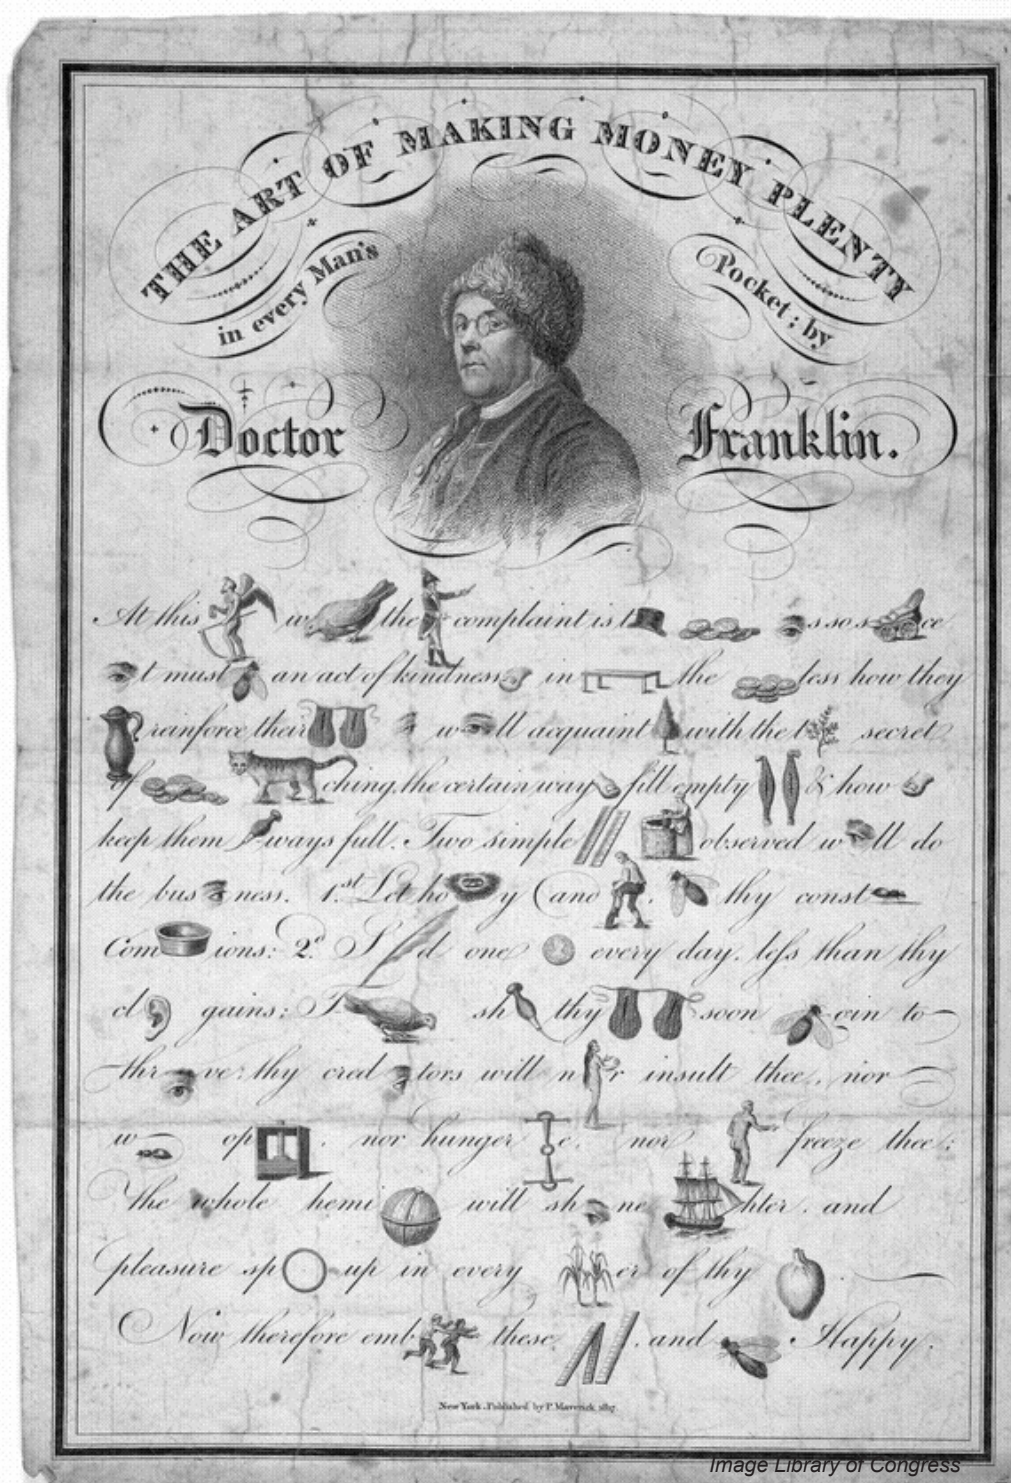 THE ART OF MAKING MONEY PLENTY
in every Man's Pocket; by
Doctor Franklin.
At this w the complaint is t s so s ce
t must an act of kindness in the less how they
reinforce their w ll acquaint with the t secret
of ching, the certain way fill empty & how
keep them ways full. Two simple observed w ll do
the bus ness. 1st Let ho y (and . thy const
Com ions: 2d S d one every day, less than thy
cl gains: T sh thy soon gin to
thr ve: thy cred tors will n r insult thee, nor
w op . nor hunger e. nor freeze thee:
The whole hemi will sh ne hter, and
pleasure sp up in every er of thy .
Now therefore emb these , and Happy.
New York. Published by P. Maverick 1817.
Image Library of Congress